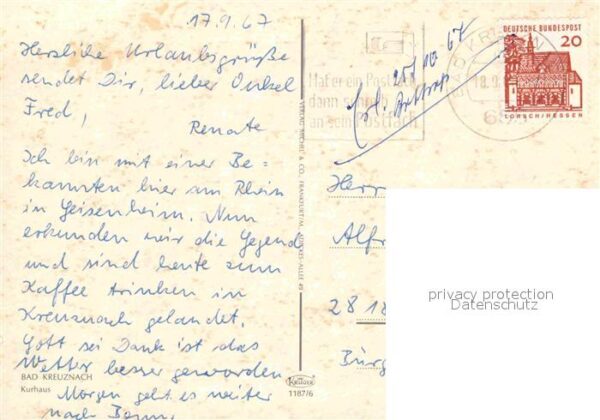 17.9.67
Herzliche Urlaubsgrüße
sendet Dir, lieber Onkel
Fred,
Renate
Ich bin mit einer Be=
kannten hier am Rhein
in Geisenheim. Nun
erkunden wir die Gegend
und sind heute zum
Kaffee trinken in
Kreuznach gelandet.
Gott sei Dank ist das
Wetter besser geworden
Morgen geht es weiter
nach Bonn.
BAD KREUZNACH
Kurhaus
VERLAG MICHEL & CO., FRANKFURT/M.
Krüger
1187/6
Hafer ein Postfach
dann schreib
an sein Postfach
25/10 67
DEUTSCHE BUNDESPOST
20
LORSCH/HESSEN
Herr
Alfr
2818
Bürg
privacy protection
Datenschutz